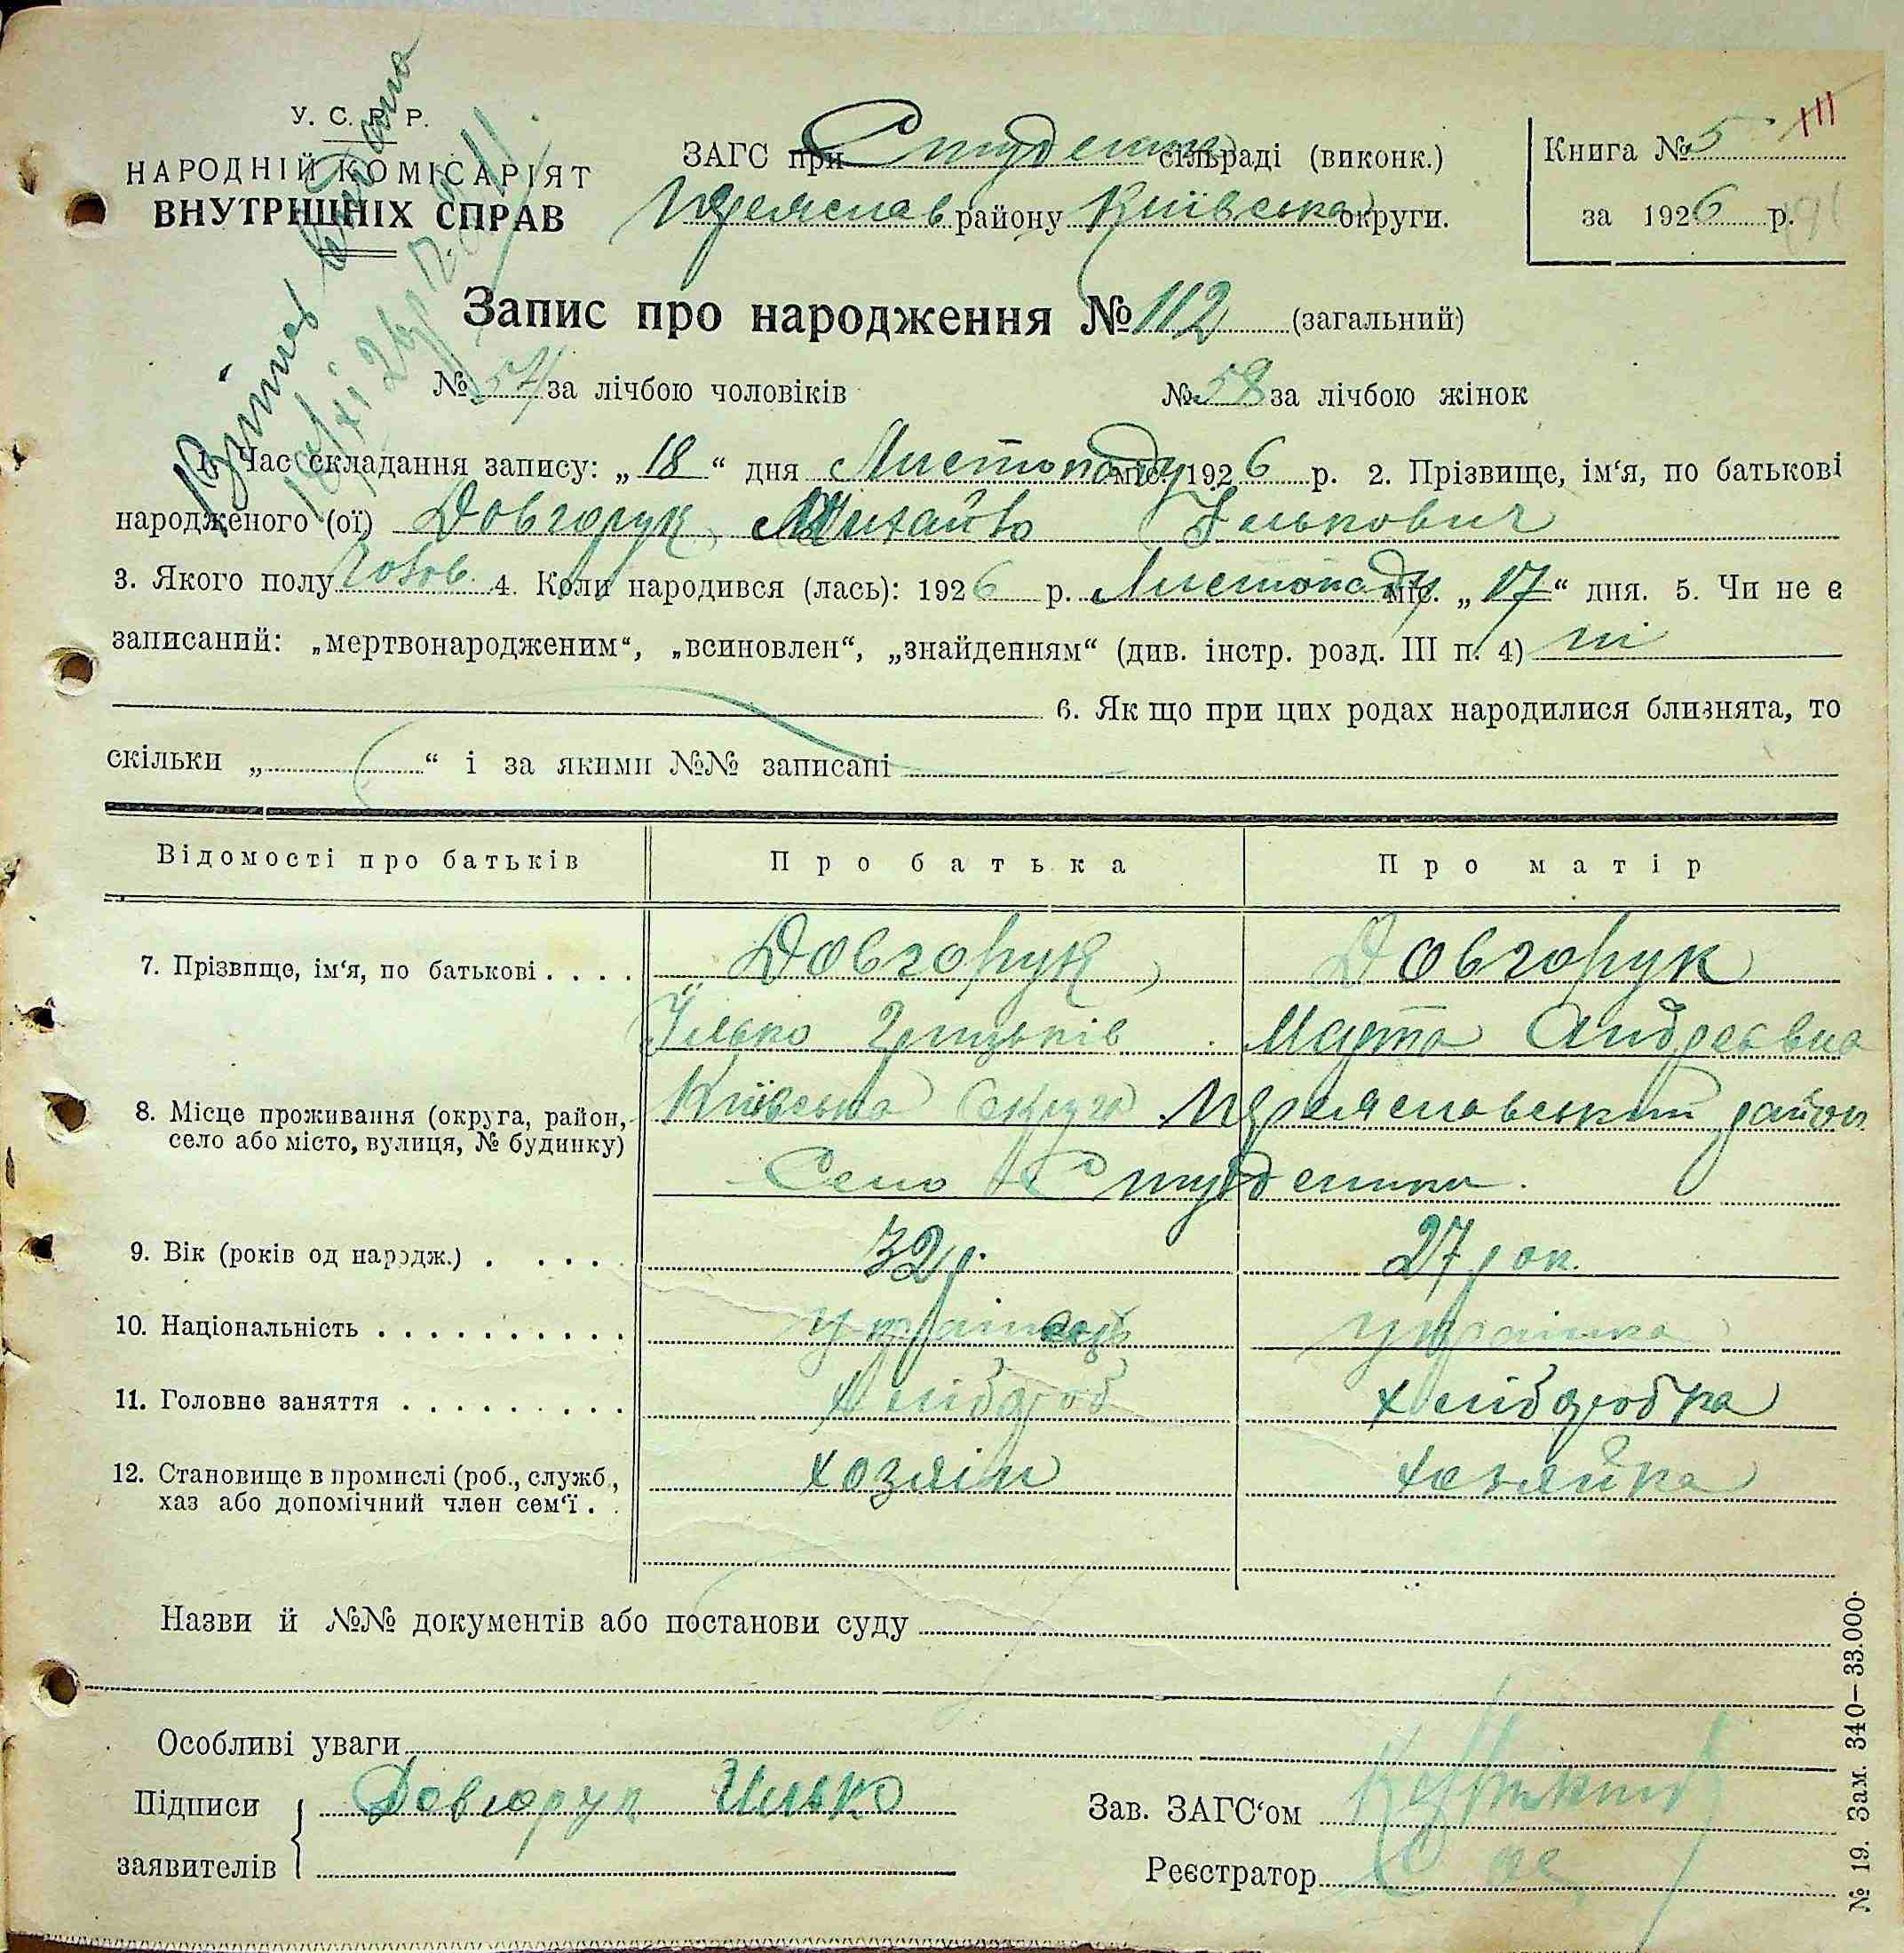 У. С. Р. Р.
НАРОДНІЙ КОМІСАРІЯТ
ВНУТРІШНІХ СПРАВ
ЗАГС при сільраді (виконк.)
Переяслав району Київська округи.
Книга № 5 III
за 1926 р.
Запис про народження № 112 (загальний)
№ 54 за лічбою чоловіків № 58 за лічбою жінок
1. Час складання запису: „18“ дня Листопаду міс. 1926 р. 2. Прізвище, ім‘я, по батькові
народженого (ої) Довгорук Михайло Ількович
3. Якого полу чолов. 4. Коли народився (лась): 1926 р. Листопаду міс. „17“ дня. 5. Чи не є
записаний: „мертвонародженим“, „всиновлен“, „знайденням“ (див. інстр. розд. III п. 4) ні
6. Як що при цих родах народилися близнята, то
скільки „ “ і за якими №№ записані
Відомості про батьків Про батька Про матір
7. Прізвище, ім‘я, по батькові . . . . Довгорук Довгорук
Ілько Марта Андреевна
8. Місце проживання (округа, район, Київська округа Переяславський район
село або місто, вулиця, № будинку) Село
9. Вік (років од народж.) . . . . . 32 р. 27 рок.
10. Національність . . . . . . . . . . українець українка
11. Головне заняття . . . . . . . . . хлібороб хліборобка
12. Становище в промислі (роб., служб., хозяїн хозяйка
хаз або допомічний член сем‘ї . .
Назви й №№ документів або постанови суду
Особливі уваги
Підписи Довгорук Илько
заявителів
Зав. ЗАГС‘ом
Реєстратор
№ 19. Зам. 340—33.000.